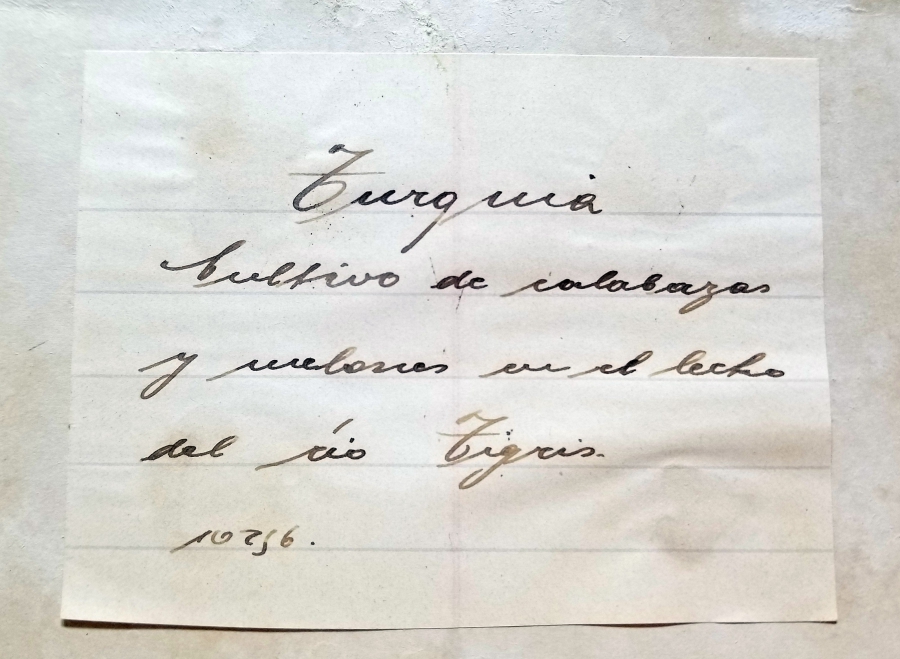 Turquia
Cultivo de calabazas
y melones en el lecho
del río Tigris.
10256.